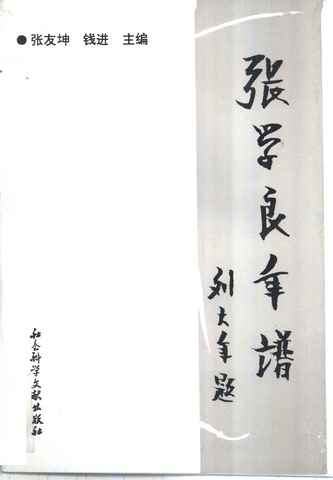 ● 张友坤 钱进 主编
張学良年譜
刘大年题
社会科学文献出版社